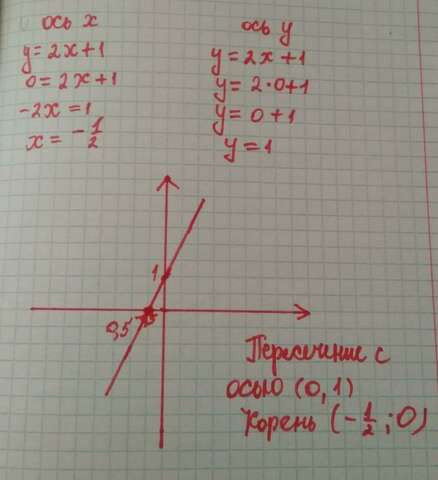 ось x
y = 2x + 1
0 = 2x + 1
-2x = 1
x = -1/2
ось y
y = 2x + 1
y = 2·0+1
y = 0 + 1
y = 1
1
0,5
Пересечение с
осью (0, 1)
Корень (-1/2; 0)